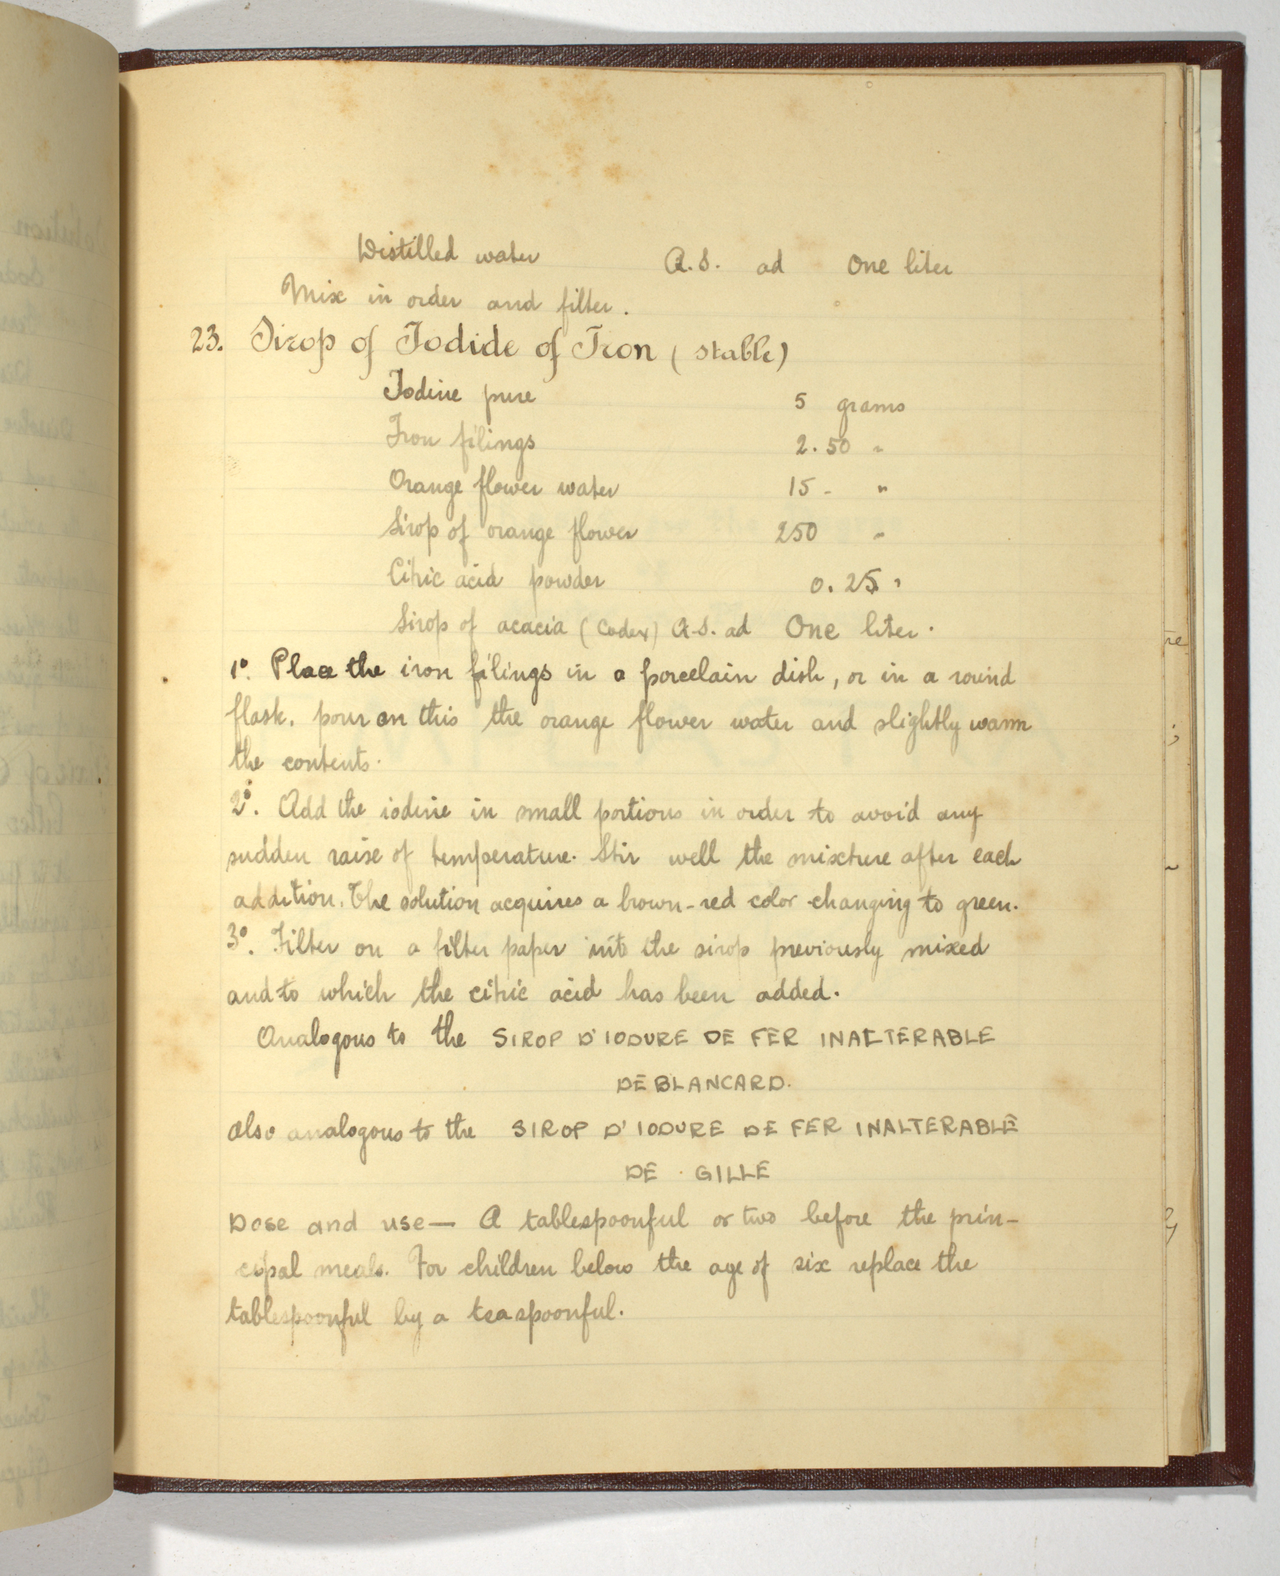 Distilled water Q.S. ad One liter
Mix in order and filter.
23. Sirop of Iodide of Iron (stable)
Iodine pure 5 grams
Iron filings 2.50 "
Orange flower water 15 - "
Sirop of orange flower 250 "
Citric acid powder 0.25 "
Sirop of acacia (Codex) Q.S. ad One liter.
1°. Place the iron filings in a porcelain dish, or in a round
flask. pour on this the orange flower water and slightly warm
the contents.
2°. Add the iodine in small portions in order to avoid any
sudden raise of temperature. Stir well the mixture after each
addition. The solution acquires a brown-red color changing to green.
3°. Filter on a filter paper into the sirop previously mixed
and to which the citric acid has been added.
Analogous to the SIROP D'IODURE DE FER INALTERABLE
DE BLANCARD.
also analogous to the SIROP D'IODURE DE FER INALTERABLE
DE GILLE
Dose and use — A tablespoonful or two before the prin-
cipal meals. For children below the age of six replace the
tablespoonful by a teaspoonful.